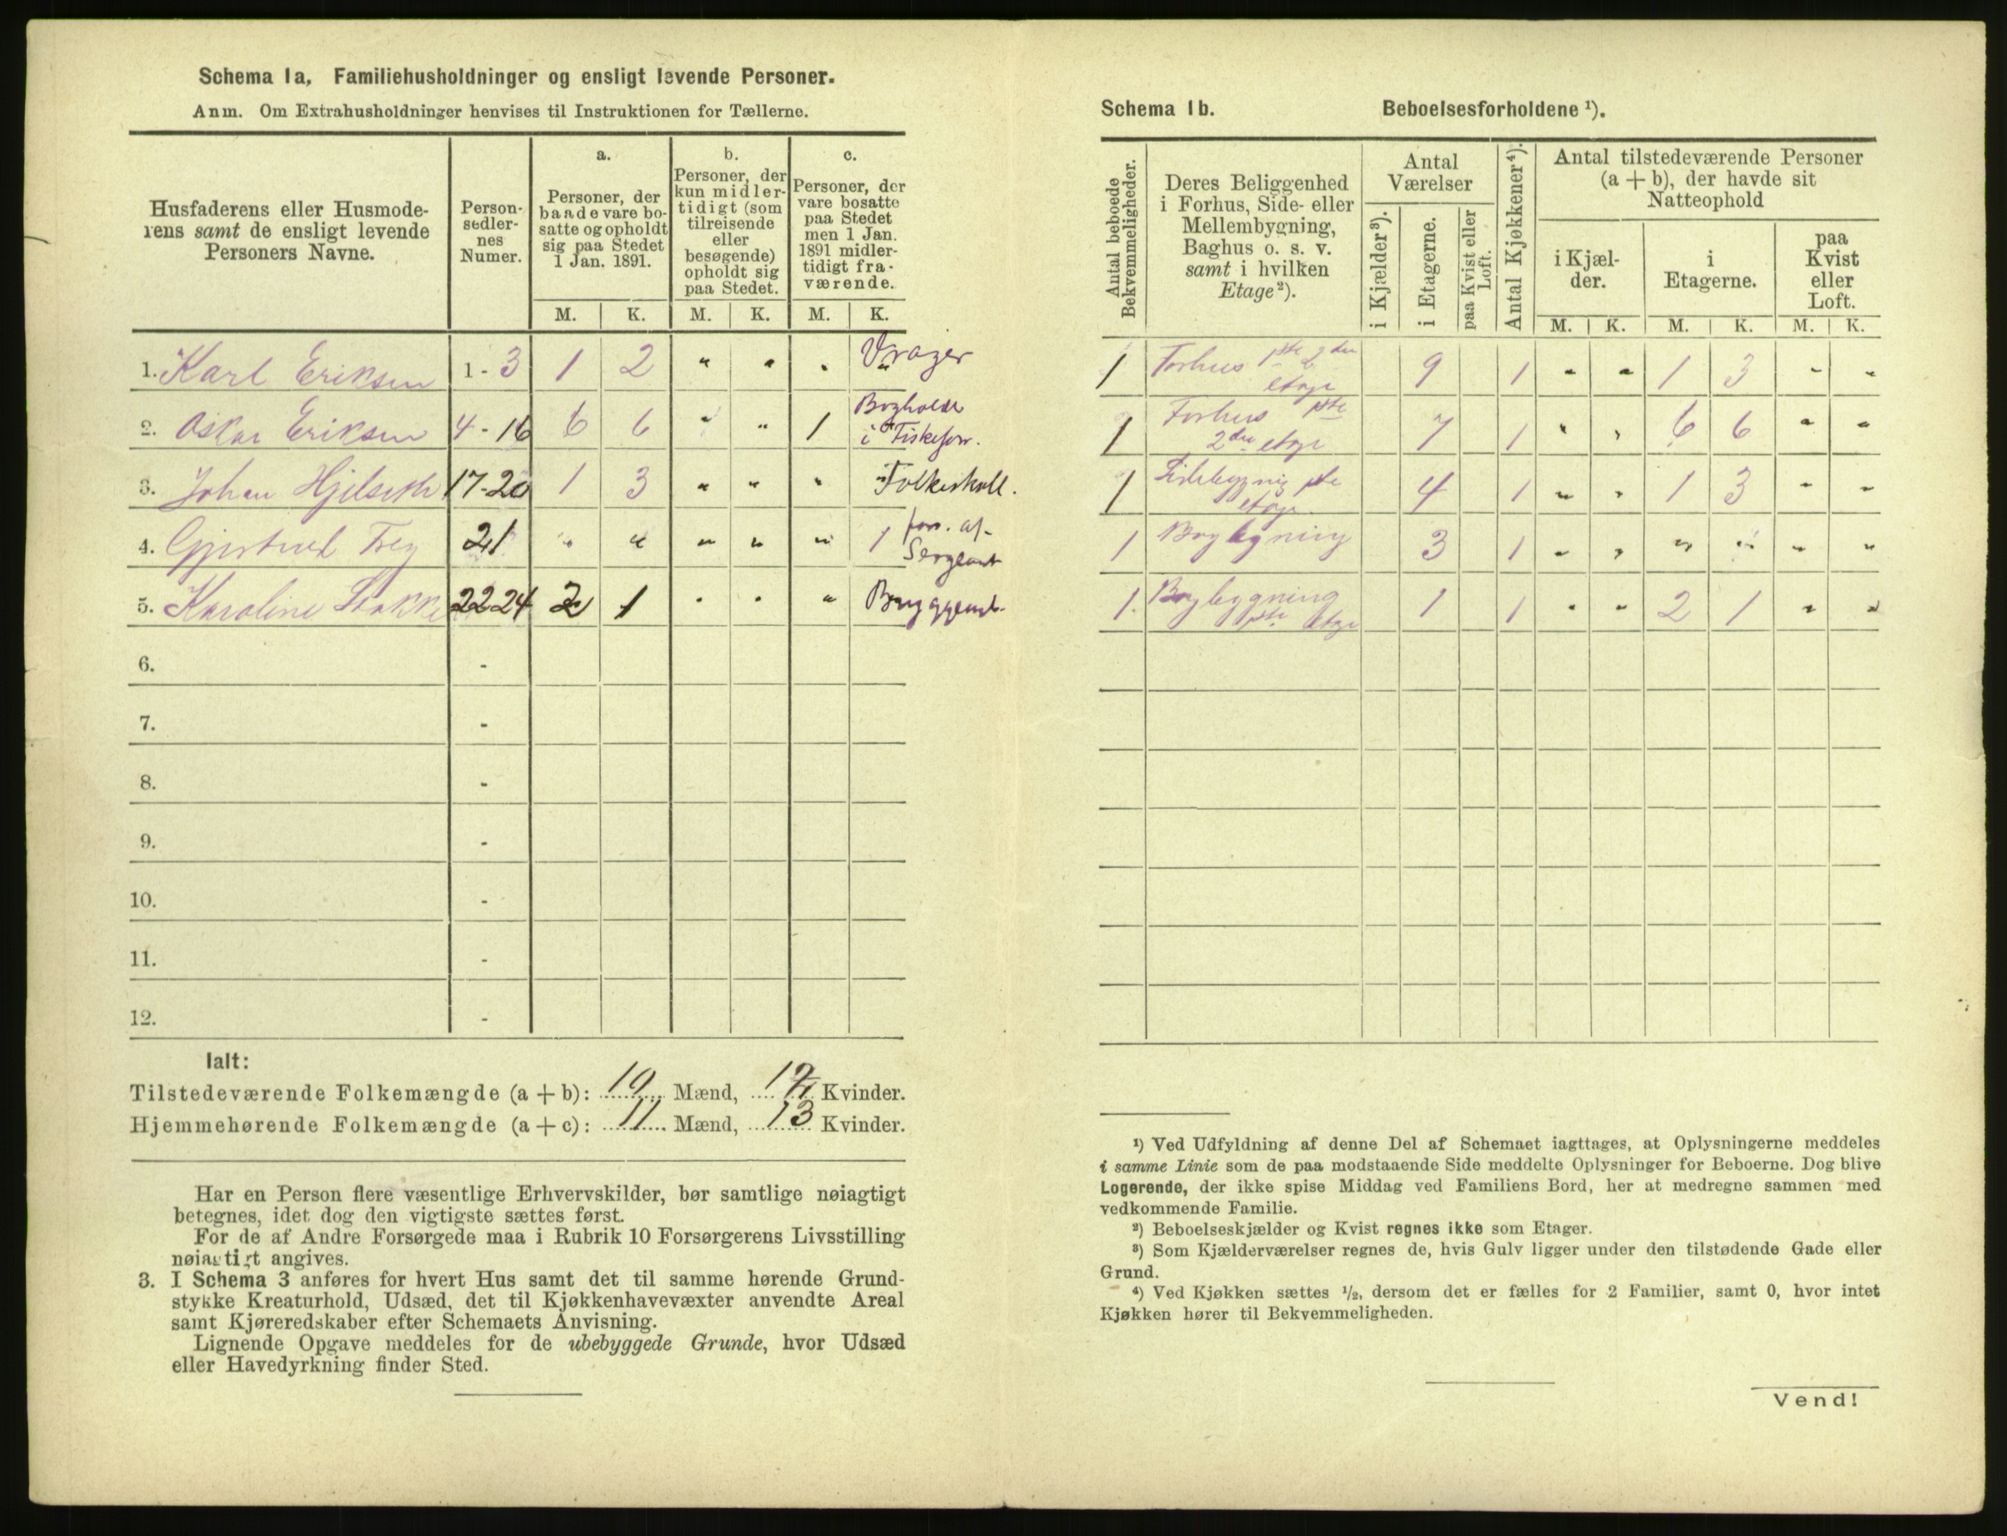 Schema 1a. Familiehusholdninger og ensligt levende Personer.
Anm. Om Extrahusholdninger henvises til Instruktionen for Tællerne.
Husfaderens eller Husmoderens samt de ensligt levende Personers Navne.
Person-sedlernes Numer.
a. Personer, der baade vare bosatte og opholdt sig paa Stedet 1 Jan. 1891.
b. Personer, der kun midlertidigt (som tilreisende eller besøgende) opholdt sig paa Stedet.
c. Personer, der vare bosatte paa Stedet men 1 Jan. 1891 midlertidigt fraværende.
M. K. M. K. M. K.
1. Karl Eriksen 1 - 3 1 2 " " " Vrager
2. Oskar Eriksen 4 - 16 6 6 " " 1 Bogholder i Fiskeforr.
3. Johan Hjelseth 17-20 1 3 " " " Folkeskoll.
4. Gjertrud Frey 21 " " " " " 1 fors. af Sergeant
5. Karoline Stokke 22 24 2 1 " " " Bryggearb.
6. -
7. -
8. -
9. -
10. -
11. -
12. -
Ialt:
Tilstedeværende Folkemængde (a + b): 10 Mænd, 12 Kvinder.
Hjemmehørende Folkemængde (a + c): 11 Mænd, 13 Kvinder.
Har en Person flere væsentlige Erhvervskilder, bør samtlige nøiagtigt
betegnes, idet dog den vigtigste sættes først.
For de af Andre Forsørgede maa i Rubrik 10 Forsørgerens Livsstilling
nøiagtigt angives.
3. I Schema 3 anføres for hvert Hus samt det til samme hørende Grund-
stykke Kreaturhold, Udsæd, det til Kjøkkenhavevæxter anvendte Areal
samt Kjøreredskaber efter Schemaets Anvisning.
Lignende Opgave meddeles for de ubebyggede Grunde, hvor Udsæd
eller Havedyrkning finder Sted.
Schema 1b. Beboelsesforholdene ¹).
Antal beboede Bekvemmeligheder.
Deres Beliggenhed i Forhus, Side- eller Mellembygning, Baghus o. s. v. samt i hvilken Etage²).
Antal Værelser
i Kjælder³).
i Etagerne.
paa Kvist eller Loft.
Antal Kjøkkener⁴).
Antal tilstedeværende Personer (a + b), der havde sit Natteophold
i Kjælder. i Etagerne. paa Kvist eller Loft.
M. K. M. K. M. K.
1 Forhus 1ste 2den etage 9 1 " " 1 3 " "
1 Forhus 1ste 2den etage 7 1 " " 6 6 " "
1 Sidebygnig 1ste etage 4 1 " " 1 3 " "
1 Bagbygning 3 1 " " " " " "
1 Bagbygning 1ste etage 1 1 " " 2 1 " "
¹) Ved Udfyldning af denne Del af Schemaet iagttages, at Oplysningerne meddeles
i samme Linie som de paa modstaaende Side meddelte Oplysninger for Beboerne. Dog blive
Logerende, der ikke spise Middag ved Familiens Bord, her at medregne sammen med
vedkommende Familie.
²) Beboelseskjælder og Kvist regnes ikke som Etager.
³) Som Kjælderværelser regnes de, hvis Gulv ligger under den tilstødende Gade eller
Grund.
⁴) Ved Kjøkken sættes ½, dersom det er fælles for 2 Familier, samt 0, hvor intet
Kjøkken hører til Bekvemmeligheden.
Vend!